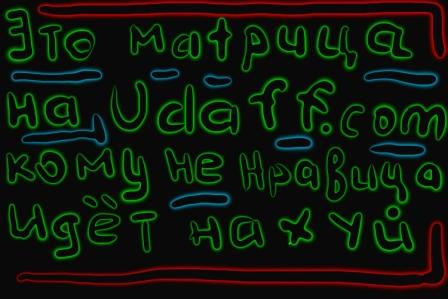 Это матрица
на Udaff.com
кому не нравица
идёт на хуй